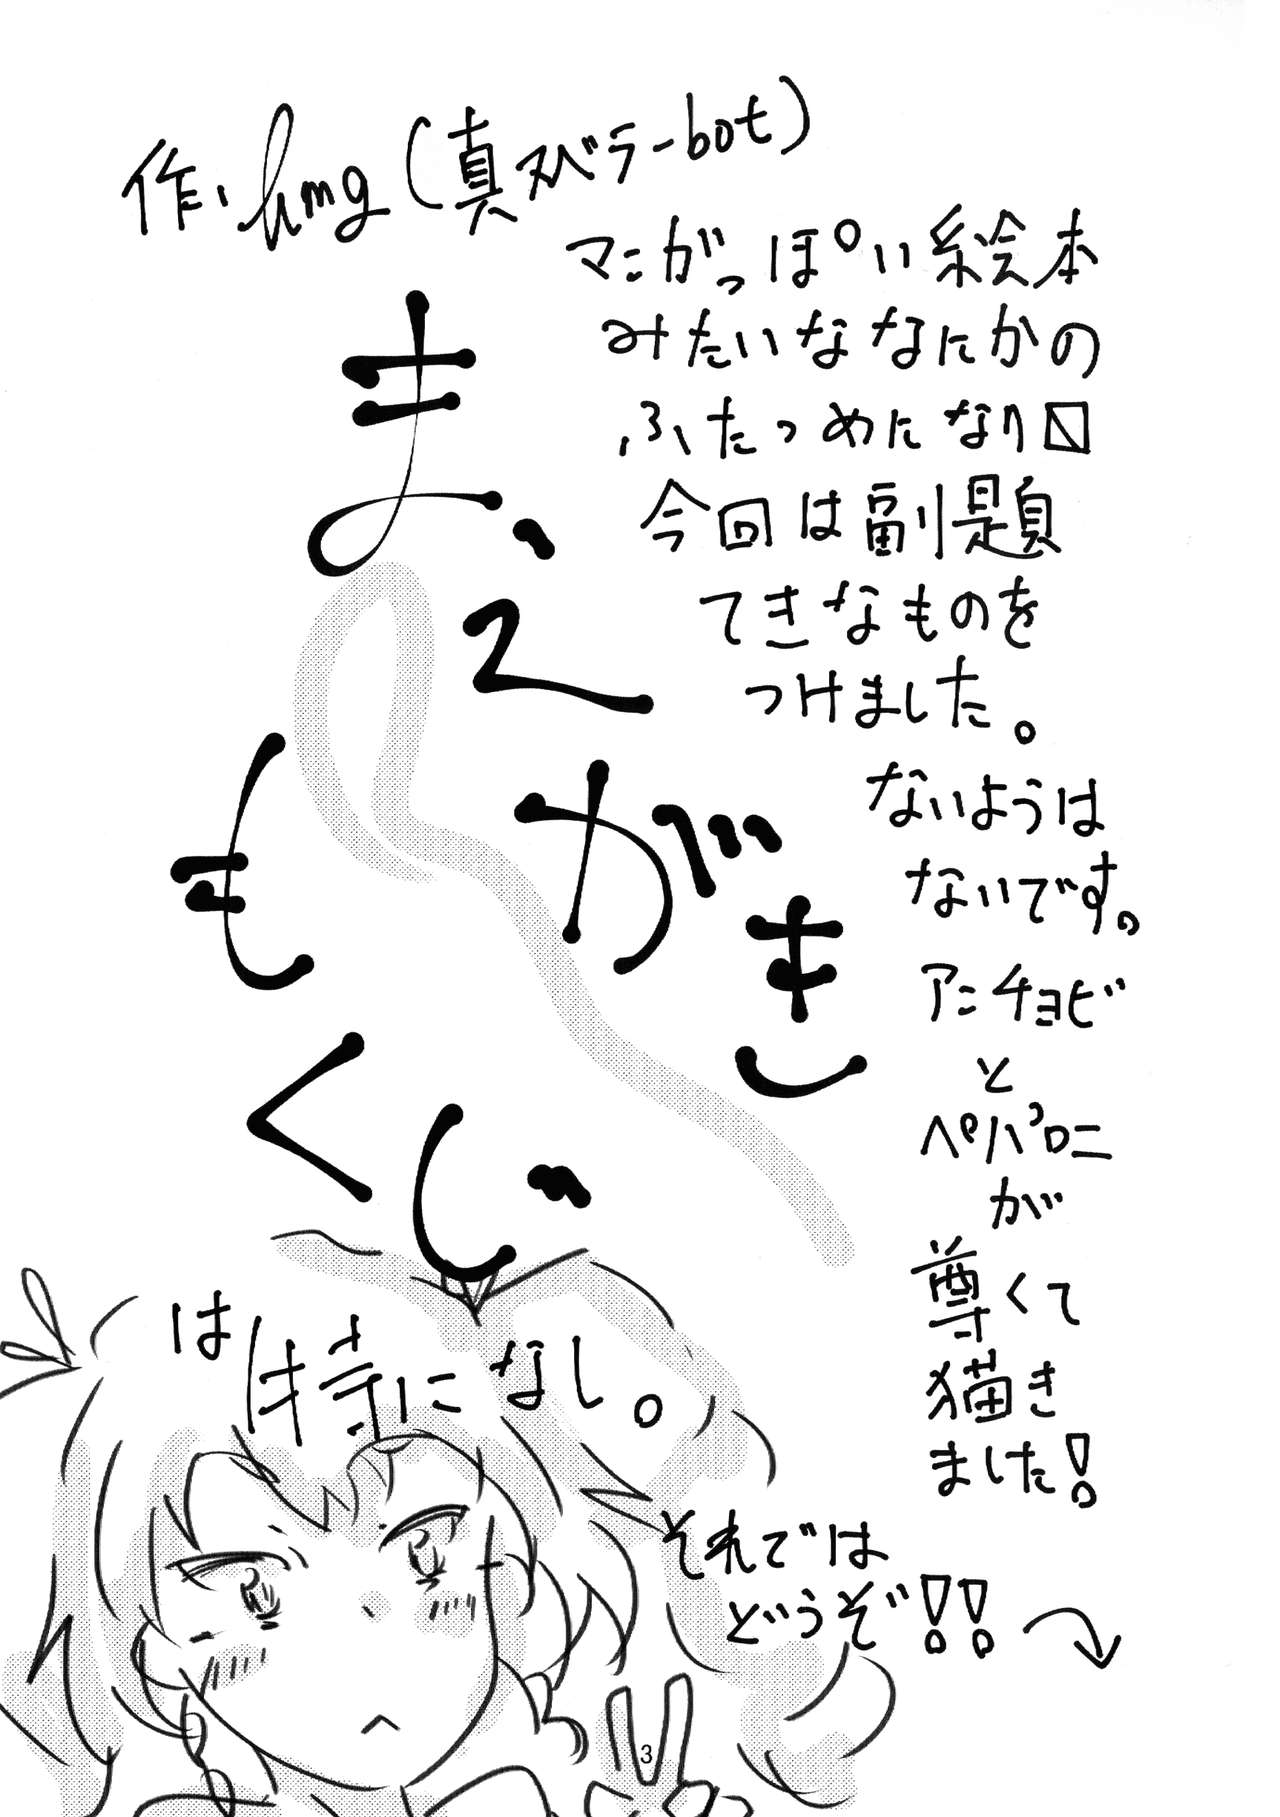 作、hmg(真スベラーbot)
マンガっぽい絵本
みたいななにかの
ふたつめになり〼
今回は副題
てきなものを
つけました。
ないようは
ないです。
アンチョビ
と
ペパロニ
が
尊くて
描き
ました!
それでは
どうぞ!!
ま、
え
がき
もくじ
は特になし。
3